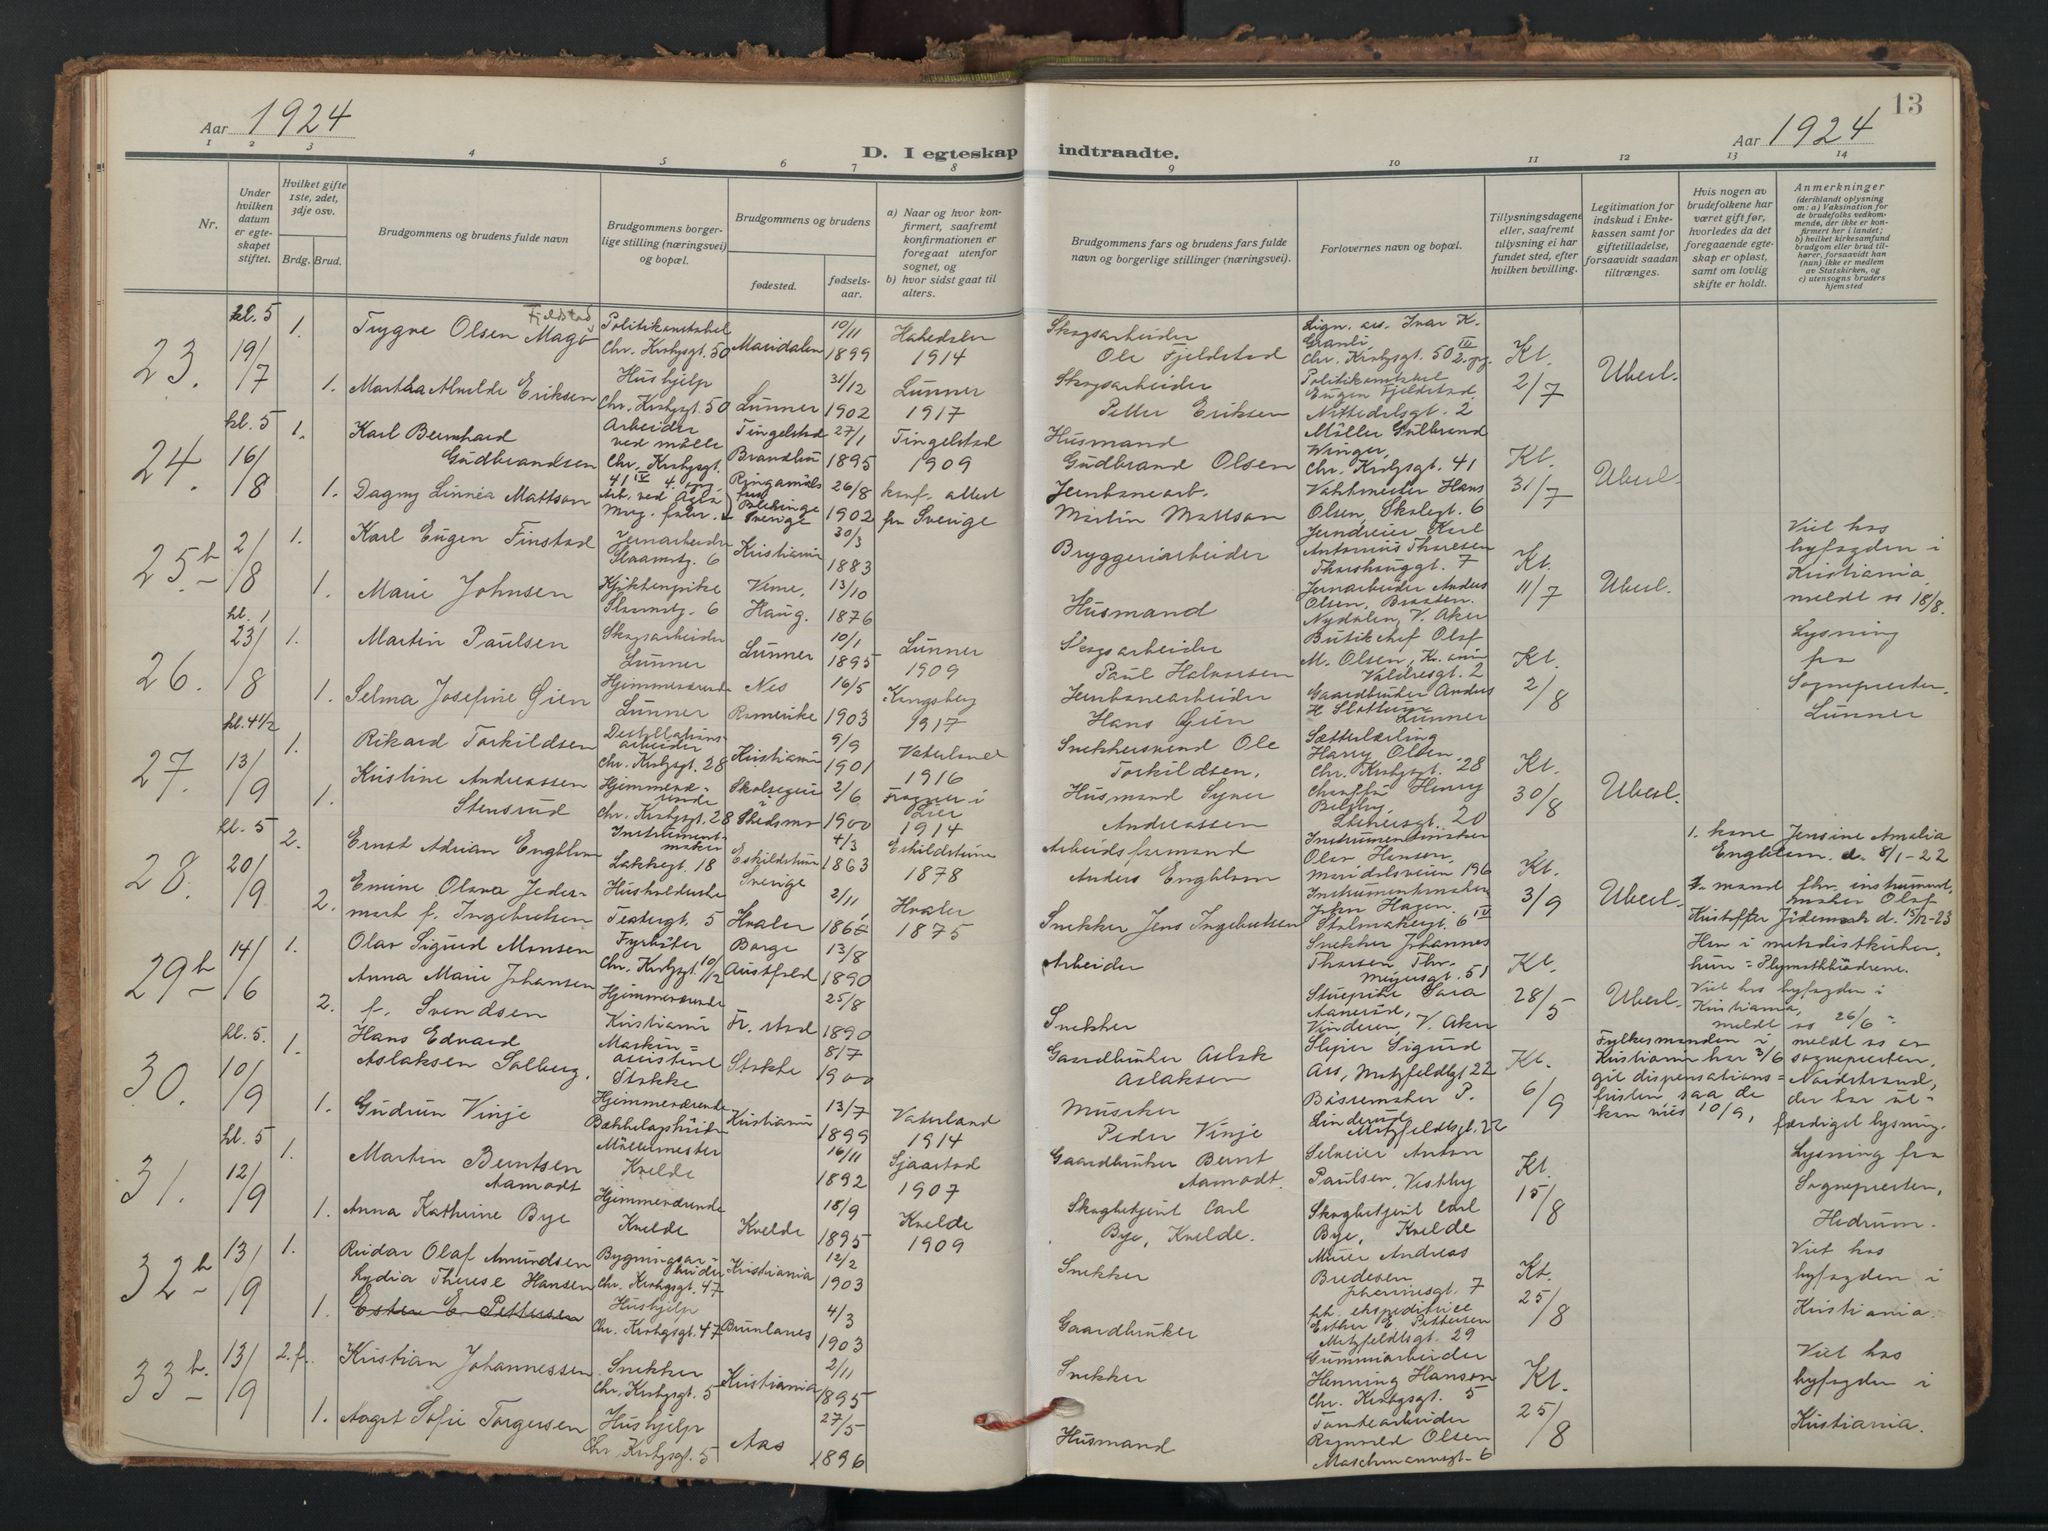 Aar 1924
D. I egteskap indtraadte.
Aar 1924
13
1 2 3 4 5 6 7 8 9 10 11 12 13 14
Nr.
Under hvilken datum er egteskapet stiftet.
Hvilket gifte 1ste, 2det, 3dje osv.
Brdg. Brud.
Brudgommens og brudens fulde navn
Brudgommens borgerlige stilling (næringsvei) og bopæl.
Brudgommens og brudens
fødested.
fødselsaar.
a) Naar og hvor konfirmert, saafremt konfirmationen er foregaat utenfor sognet, og
b) hvor sidst gaat til alters.
Brudgommens fars og brudens fars fulde navn og borgerlige stillinger (næringsvei).
Forlovernes navn og bopæl.
Tillysningsdagene eller, saafremt tillysning ei har fundet sted, efter hvilken bevilling.
Legitimation for indskud i Enkekassen samt for giftetilladelse, forsaavidt saadan tiltrænges.
Hvis nogen av brudefolkene har været gift før, hvorledes da det foregaaende egteskap er opløst, samt om lovlig skifte er holdt.
Anmerkninger (deriblandt oplysning om: a) Vaksination for de brudefolks vedkommende, der ikke er konfirmert her i landet; b) hvilket kirkesamfund brudgom eller brud tilhører, forsaavidt han (hun) ikke er medlem av Statskirken, og c) utensogns bruders hjemsted
23. kl. 5 19/7
1. Trygve Olsen Fjeldstad
Politikonstabel Chr. Krohgsgt. 50
Maridalen 10/11 1899
1914
Skogsarbeider Ole Fjeldstad
Chr. Krohgsgt. 50
Kl. 2/7
Uberl.
1. Martha Alvilde Eriksen
Hushjelp Chr. Krohgsgt. 50
Lunner 31/12 1902
Lunner 1917
Skogsarbeider Petter Eriksen
Politikonstabel Eugen Fjeldstad, Nittedalsgt. 2
24. kl. 5 16/8
1. Karl Bernhard Gudbrandsen
Arbeider ved mølle Chr. Krohgsgt. 41 IV
Tingelstad Brandbu 27/1 1895
Tingelstad 1909
Husmand Gudbrand Olsen
Møller Gulbrand Winger, Chr. Krohgsgt. 41
Kl. 31/7
Uberl.
1. Dagny Linnea Mattson
Sverige 26/8 1902
konf. attest fra Sverige
Jernbanearb. Martin Mattson
Vaktmester Hans Olsen, Skolegt. 6
25 b 2/8
1. Karl Eugen Finstad
Jernarbeider 6
Kristiania 30/3 1883
Bryggeriarbeider
Karl Antonius Thoresen 7
Kl. 11/7
Uberl.
Viet hos byfogden i Kristiania, meldt os 18/8.
1. Marie Johnsen
6
Haug. 13/10 1876
Husmand
Jernarbeider Anders Olsen, Braaten, Nydalen, V. Aker
26. kl. 1 23/8
1. Martin Paulsen
Skogsarbeider Lunner
Lunner 10/1 1895
Lunner 1909
Skogsarbeider Paul Halvorsen
Butikchef Olaf M. Olsen, Kr.ania Valdresgt. 2
Kl. 2/8
Lysning fra Sognepresten, Lunner
1. Selma Josefine Øien
Hjemmeværende Lunner
Nes Romerike 16/5 1903
Kongsberg 1917
Jernbanearbeider Hans Øien
Gaardbruker Anders H. Slottum Lunner
27. kl. 4 1/2 13/9
1. Rikard Torkildsen
Destillationsarbeider Chr. Krohgsgt. 28
Kristiania 9/9 1901
Vaterland 1916
Snekkersvend Ole Torkildsen.
Sætterlærling Harry Olsen Chr. Krohgsgt. 28
Kl. 30/8
Uberl.
1. Kristine Andreassen Stensrud
Hjemmeværende Chr. Krohgsgt. 28
Skedsmo 2/6 1900
Frogner i Lier 1914
Husmand Syver Andreassen
Chauffør Henry 20
28. kl. 5 20/9
2. Ernst Adrian Engblom
Instrumentmaker Lakkegt. 18
Eskildstuna Sverige 4/3 1863
Eskildstuna 1878
Arbeidsformand Anders Engblom
Instrumentmaker Olav Hansen, Maridalsveien 196
Kl. 3/9
Uberl.
1. kone Jensine Amalia Engblom d. 8/1-22
2. Emine Olava Jedermark f. Ingebretsen
Husholderske Teatergt. 5
Hvaler 2/11
Hvaler 1875
Snekker Jens Ingebretsen
Instrumentmaker John Hagen, Stolmakergt. 6 IV
1. mand fhv. instrumentmaker Olaf Kristoffer Jødemark d. 15/12-23
29 b 14/6
1. Olav Sigurd Monsen
Fyrbøter Chr. Krohgsgt. 10/12
Borge Østfold 13/8 1890
Arbeider
Snekker Johannes Thorsen, Thv. Meyersgt. 51
Kl. 28/5
Uberl.
Han i metodistkirken, hun = Plymothbrödrene.
Viet hos byfogden i Kristiania, meldt os 26/6
2. Anna Marie Johansen f. Svendsen
Hjemmeværende Kristiania
Fr.stad 25/8 1890
Snekker
Vinderen, V. Aker
30. kl. 5. 10/9
1. Hans Edvard Aslaksen Solberg.
Maskinassistent Stokke
Stokke 8/7 1900
Gaardbruker Aslak Aslaksen
Sigurd Aas, Metzfeldtgt. 22
Kl. 6/9
Fylkesmanden i Kristiania har 3/6 git dispensationsfristen saa de kan vies 10/9,
meldt os av sognepresten, Nordstrand, der har utfærdiget lysning.
1. Gudrun Vinje
Hjemmeværende Bækkelagshøiden
Kristiania 13/7 1899
Vaterland 1914
Musiker Peder Vinje
Bøssemaker P. Linderud Metzfeldtsgt. 22
31. kl. 5 12/9
1. Martin Berntsen Aamodt
Møllemester Kvelde
16/11 1892
Sjaastad 1907
Gaardbruker Bernt Aamodt.
Selveier Anton Paulsen, Vestby
Kl. 15/8
Lysning fra Sognepresten, Hedrum.
1. Anna Kathrine Bye
Hjemmeværende Kvelde
Kvelde 18/9 1895
Kvelde 1909
Skogbetjent Carl Bye, Kvelde.
Skogbetjent Carl Bye, Kvelde
32 b 13/9
1. Reidar Olaf Amundsen
Bygningsarbeider Chr. Krohgsgt. 47
Kristiania 12/2 1903
Snekker
Murer Andreas Bredesen 7
Kl. 25/8
Viet hos byfogden i Kristiania.
1. Lydia Therese Hansen
Ester E. Pettersen
Hushjelp Chr. Krohgsgt. 47
Brunlanes 4/3 1903
Gaardbruker
Esther E. Pettersen Metzfeldtsgt. 29
33 b. 13/9
2. f. Kristian Johannessen
Snekker Chr. Krohgsgt. 5
Kristiania 2/11 1895
Snekker
Gummiarbeider Henning Hanson Chr. Krohgsgt. 5
Kl. 25/8
Viet hos byfogden i Kristiania.
1. Aagot Sofie Torgersen
Hushjelp Chr. Krohgsgt. 5
Aas 27/5 1896
Husmand
Tomtearbeider Ragnvald Olsen Maschmannsgt. 6